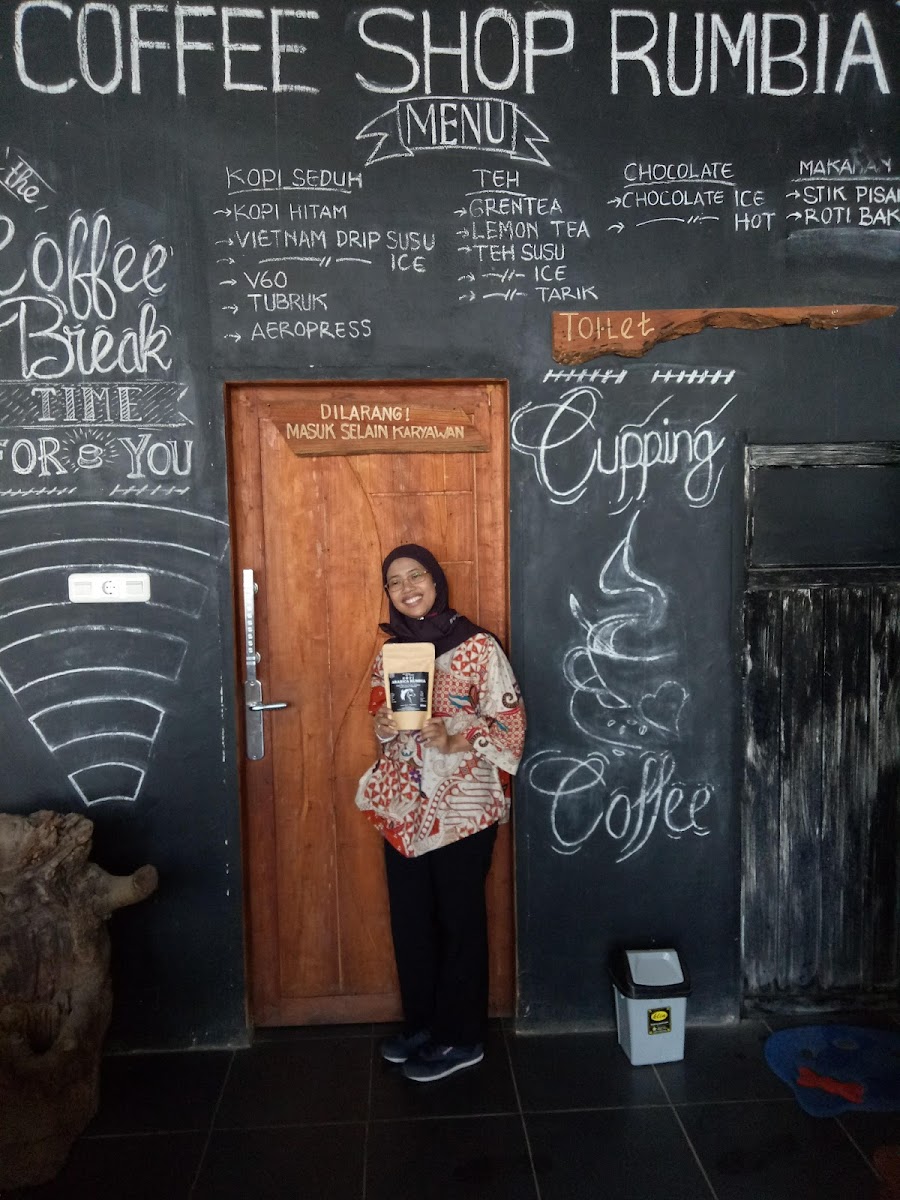 COFFEE SHOP RUMBIA
MENU
the
Coffee
Break
TIME
FOR YOU
KOPI SEDUH
→ KOPI HITAM
→ VIETNAM DRIP SUSU
→ —//— ICE
→ V60
→ TUBRUK
→ AEROPRESS
TEH
→ GRENTEA
→ LEMON TEA
→ TEH SUSU
→ —//— ICE
→ —//— TARIK
CHOCOLATE
→ CHOCOLATE ICE
→ —//— HOT
MAKANAN
→ STIK PISA
→ ROTI BAK
TOILET
DILARANG!
MASUK SELAIN KARYAWAN
Cupping
Coffee
ARABICA RUMBIA